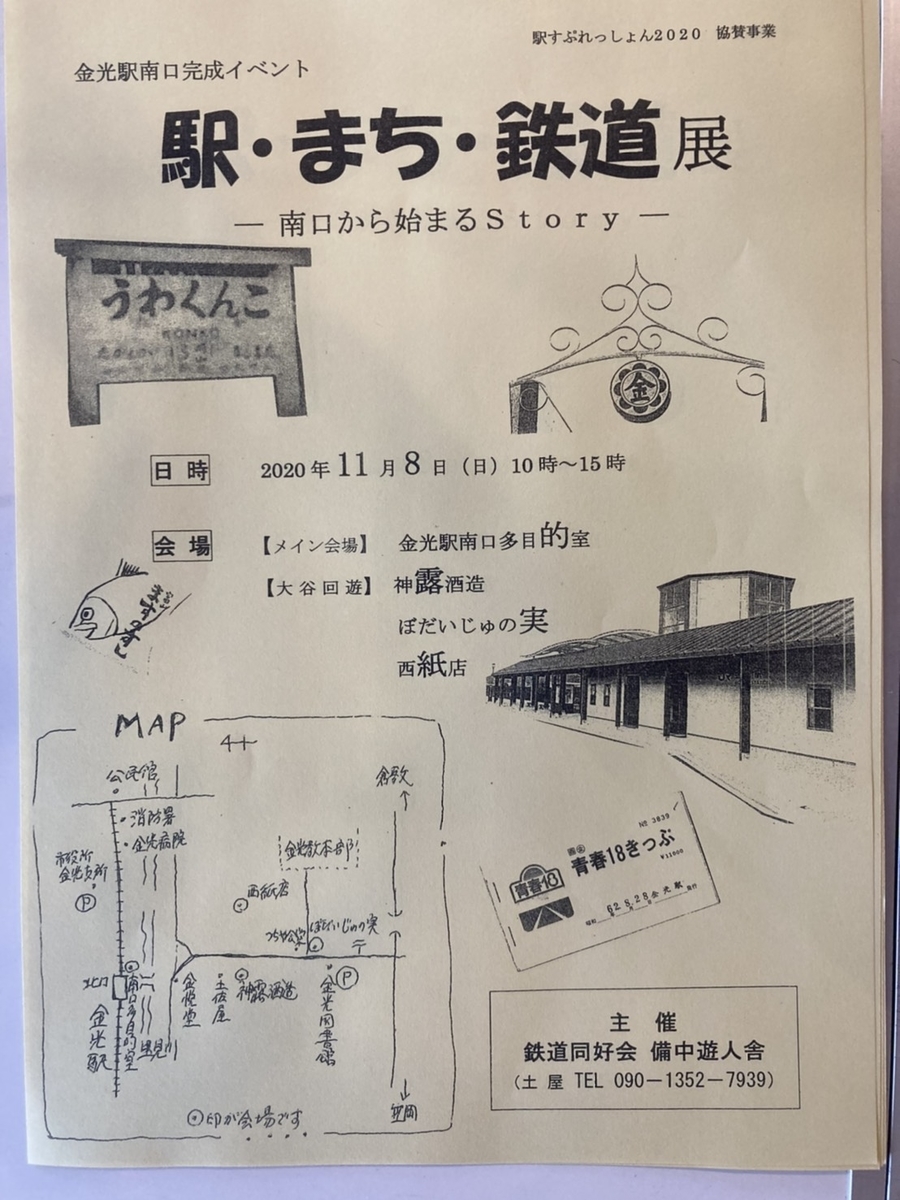 駅すぷれっしょん2020 協賛事業
金光駅南口完成イベント
駅・まち・鉄道展
― 南口から始まるStory ―
うわくんこ
KONKO
金
日時 2020年11月8日（日）10時～15時
会場 【メイン会場】 金光駅南口多目的室
【大谷回遊】 神露酒造
ぼだいじゅの実
西紙店
ますのすし
MAP
4+
公民館
倉敷
消防署
金光病院
市役所
金光支所
P
金光教本部
西紙店
つちや公堂
ぼだいじゅの実
〒
北口
金光駅
南口多目的室
里見川
金悦堂
土佐屋
神露酒造
金光図書館
P
笠岡
◎印が会場です
No 3839
青春18きっぷ
¥11000
青春18
62.8.28 金光駅発行
主催
鉄道同好会 備中遊人舎
（土屋 TEL 090－1352－7939）